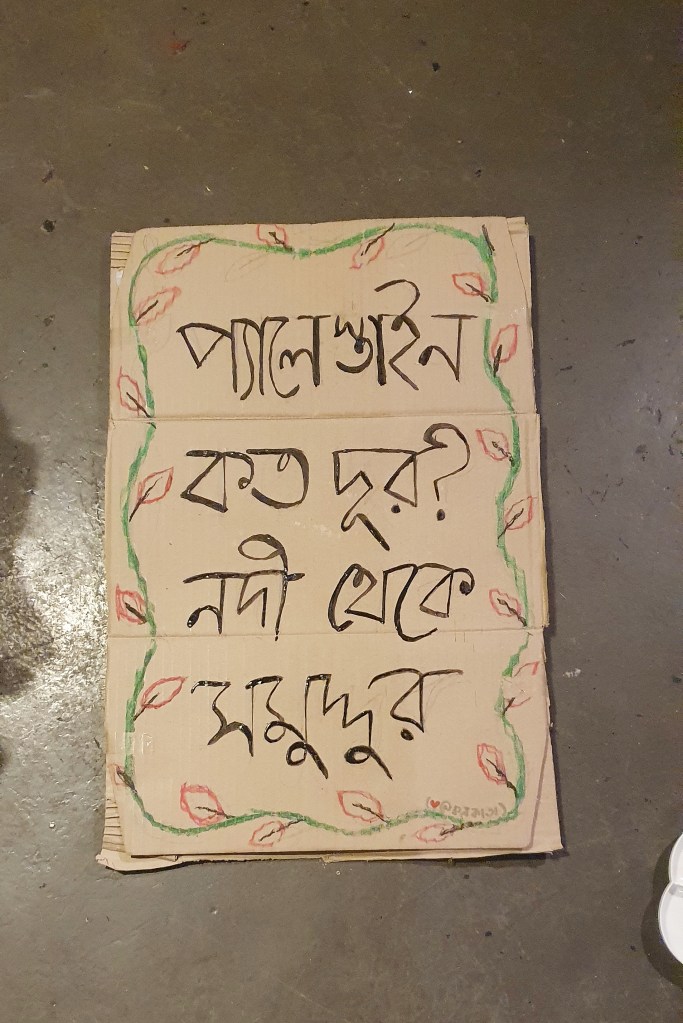 প্যালেস্তাইন
কত দূর?
নদী থেকে
সমুদ্দুর